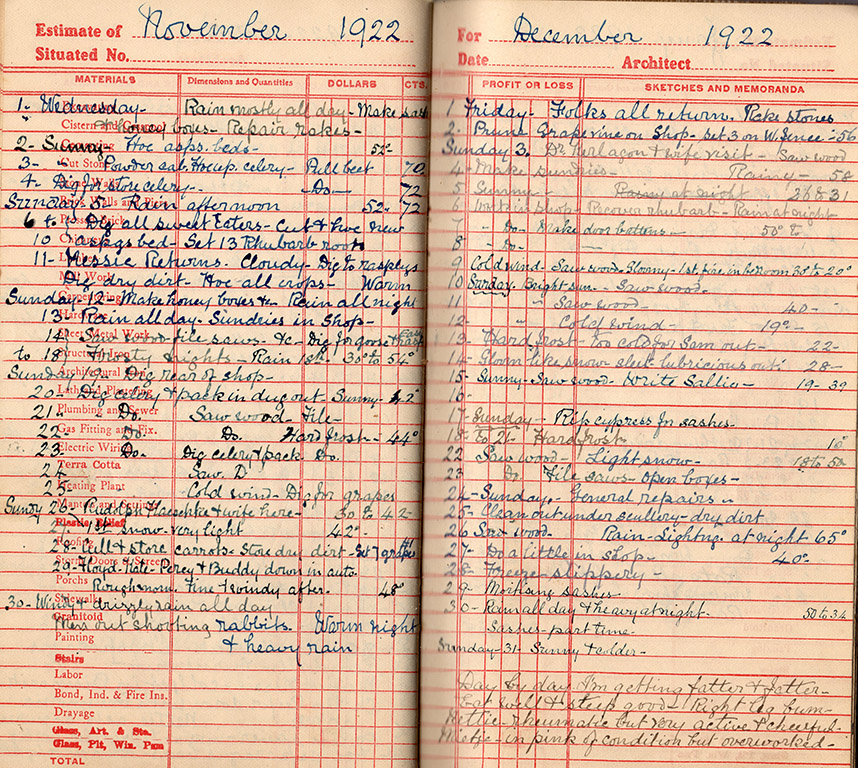 Estimate of November 1922
Situated No.
MATERIALS Dimensions and Quantities DOLLARS CTS.
1- Wednesday- Rain mostly all day- Make sash
" & honey boxes- Repair rakes-
2- Sunny Hoe asps. beds- 52°
3- Powder sal. Hoe up. celery- Pull beet 70
4- Dig for store celery- -Do- 72
Sunday 5- Rain afternoon 52- 72
6 to Dig all sweet Eaters- Cut & hoe new
10 raspgs bed- Set 13 Rhubarb roots
11- Nessie Returns. Cloudy- Dig to raspbys
Dig dry dirt- Hoe all crops- Warm
Sunday 12- Make honey boxes &c- Rain all night
13- Rain all day- Sundries in Shop-
14- Saw wood- file saws- &c- Dig for goose
to 18 Frosty nights- Rain 18th- 30° to 54°
Sunday 19 Dig rear of shop-
20- Dig celery & pack in dug out Sunny- 42°
21- Do. Saw wood File-
22- Do Do. Hard frost- 44°
23 Do- Dig celery & pack Do.
24 Saw. D
25- Cold wind- Dig for grapes
Sundy 26- Rudolph Haeschke & wife here- 30 to 42-
27 1st snow- very light 42°-
28- Pull & store carrots- Store dry dirt- Set 7 grapes
29- Floyd- Kate- Percy & Buddy down in auto.
Rough snow. Fine & windy after. 48°
30- Windy & drizzly rain all day
Men out shooting rabbits. Warm night
& heavy rain
Cistern and
Cut Stone
Pressed Brick
Mill Work
Hardware
Sheet Metal Work
Structural Iron
Architectural Iron
Lath and Plastering
Plumbing and Sewer
Gas Fitting and Fix.
Electric Wiring
Terra Cotta
Heating Plant
Mantels and
Plastic Relief
Roofing
Storm Doors & Screens
Porchs
Sidewalks
Granitoid
Painting
Stairs
Labor
Bond, Ind. & Fire Ins.
Drayage
Glass, Art. & Sta.
Glass, Plt, Win. Pnm
TOTAL
For December 1922
Date Architect
PROFIT OR LOSS SKETCHES AND MEMORANDA
1 Friday- Folks all return. Rake stones
2- Prune Grape vine on Shop- set 3 on W. fence- 56
Sunday 3. Dr. & wife visit- Saw wood
4- Make sundries- Rainy- 58
5 Sunny- Rainy at night 26 & 31
6 Work in shop- Recover rhubarb- Rain at night
7 " Do- Make door bottoms- 50° to
8 " Do-
9 Cold wind- Saw wood- Gloomy- 1st fire in bedroom 30° to 20°
10 Sunday- Bright sun- Saw wood.
11 " Saw wood- 40-
12- " Cold wind- 19°-
13- Hard frost- too cold for Sam out- 22-
14- Gloom like snow- sleet- lubricious out! 28-
15- Sunny- Saw wood- Write Sallie- 19- 39
16-
17- Sunday- Rip cypress for sashes-
18- to 21- Hard frost- 10°
22 Saw wood- Light snow- 18 to 50
23 Do File saws- Open boxes-
24- Sunday- General repairs-
25- Clean out under scullery- dry dirt
26 Saw wood. Rain- Lightng. at night 65°
27- Do a little in shop- 40°
28- Freeze- slippery-
29- Mortising sashes-
30- Rain all day & heavy at night- 50 to 34
Sashes- part time-
Sunday- 31- Sunny & colder-
Day by day I'm getting fatter & fatter-
Eat well & sleep good- Right leg bum-
Nettie- rheumatic but very active & cheerful-
Mietje- in pink of condition but overworked-